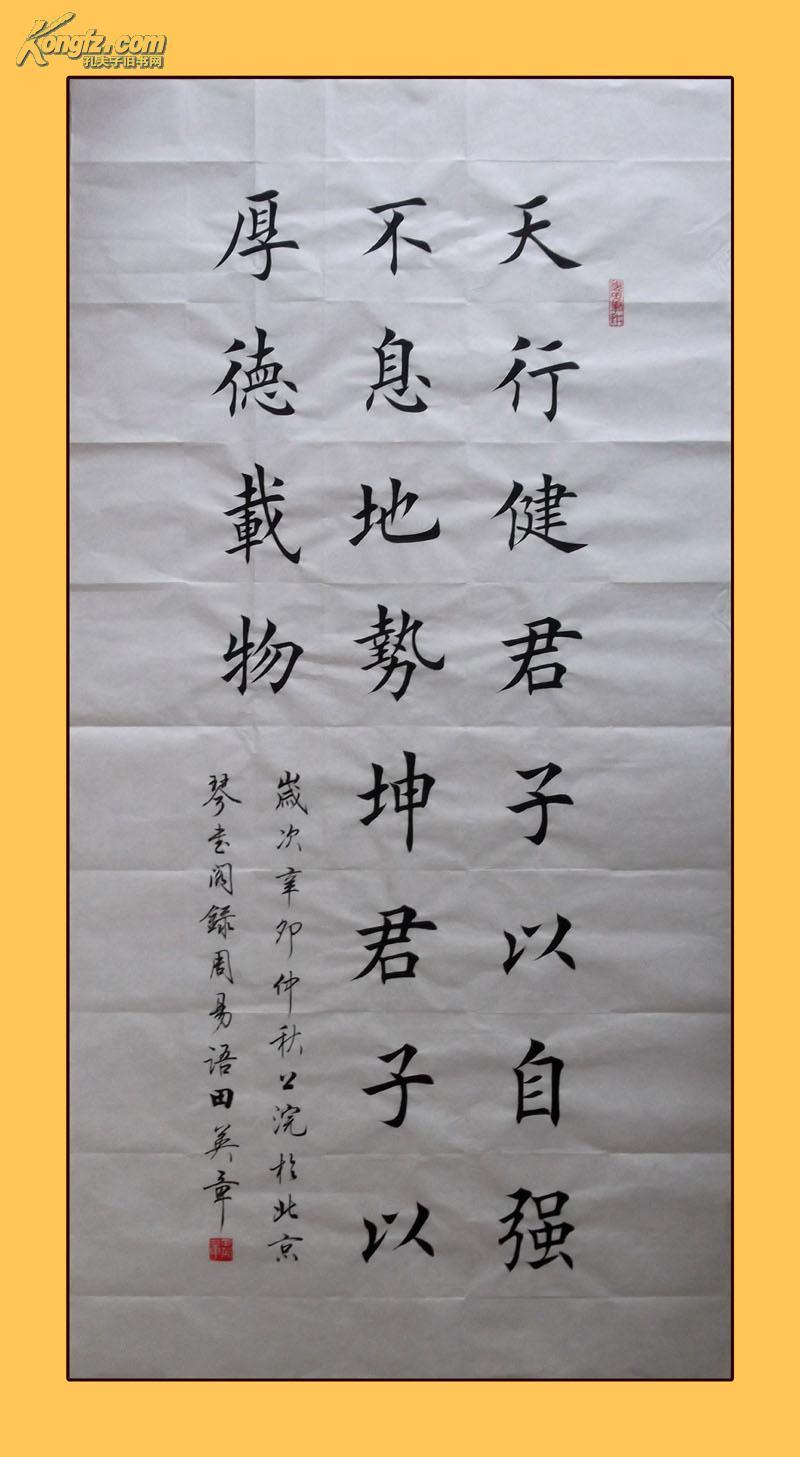 Kongfz.com
孔夫子旧书网
天行健君子以自强
不息地勢坤君子以
厚德載物
嵗次辛卯仲秋公浣於北京
琴書閣録周易语田英章